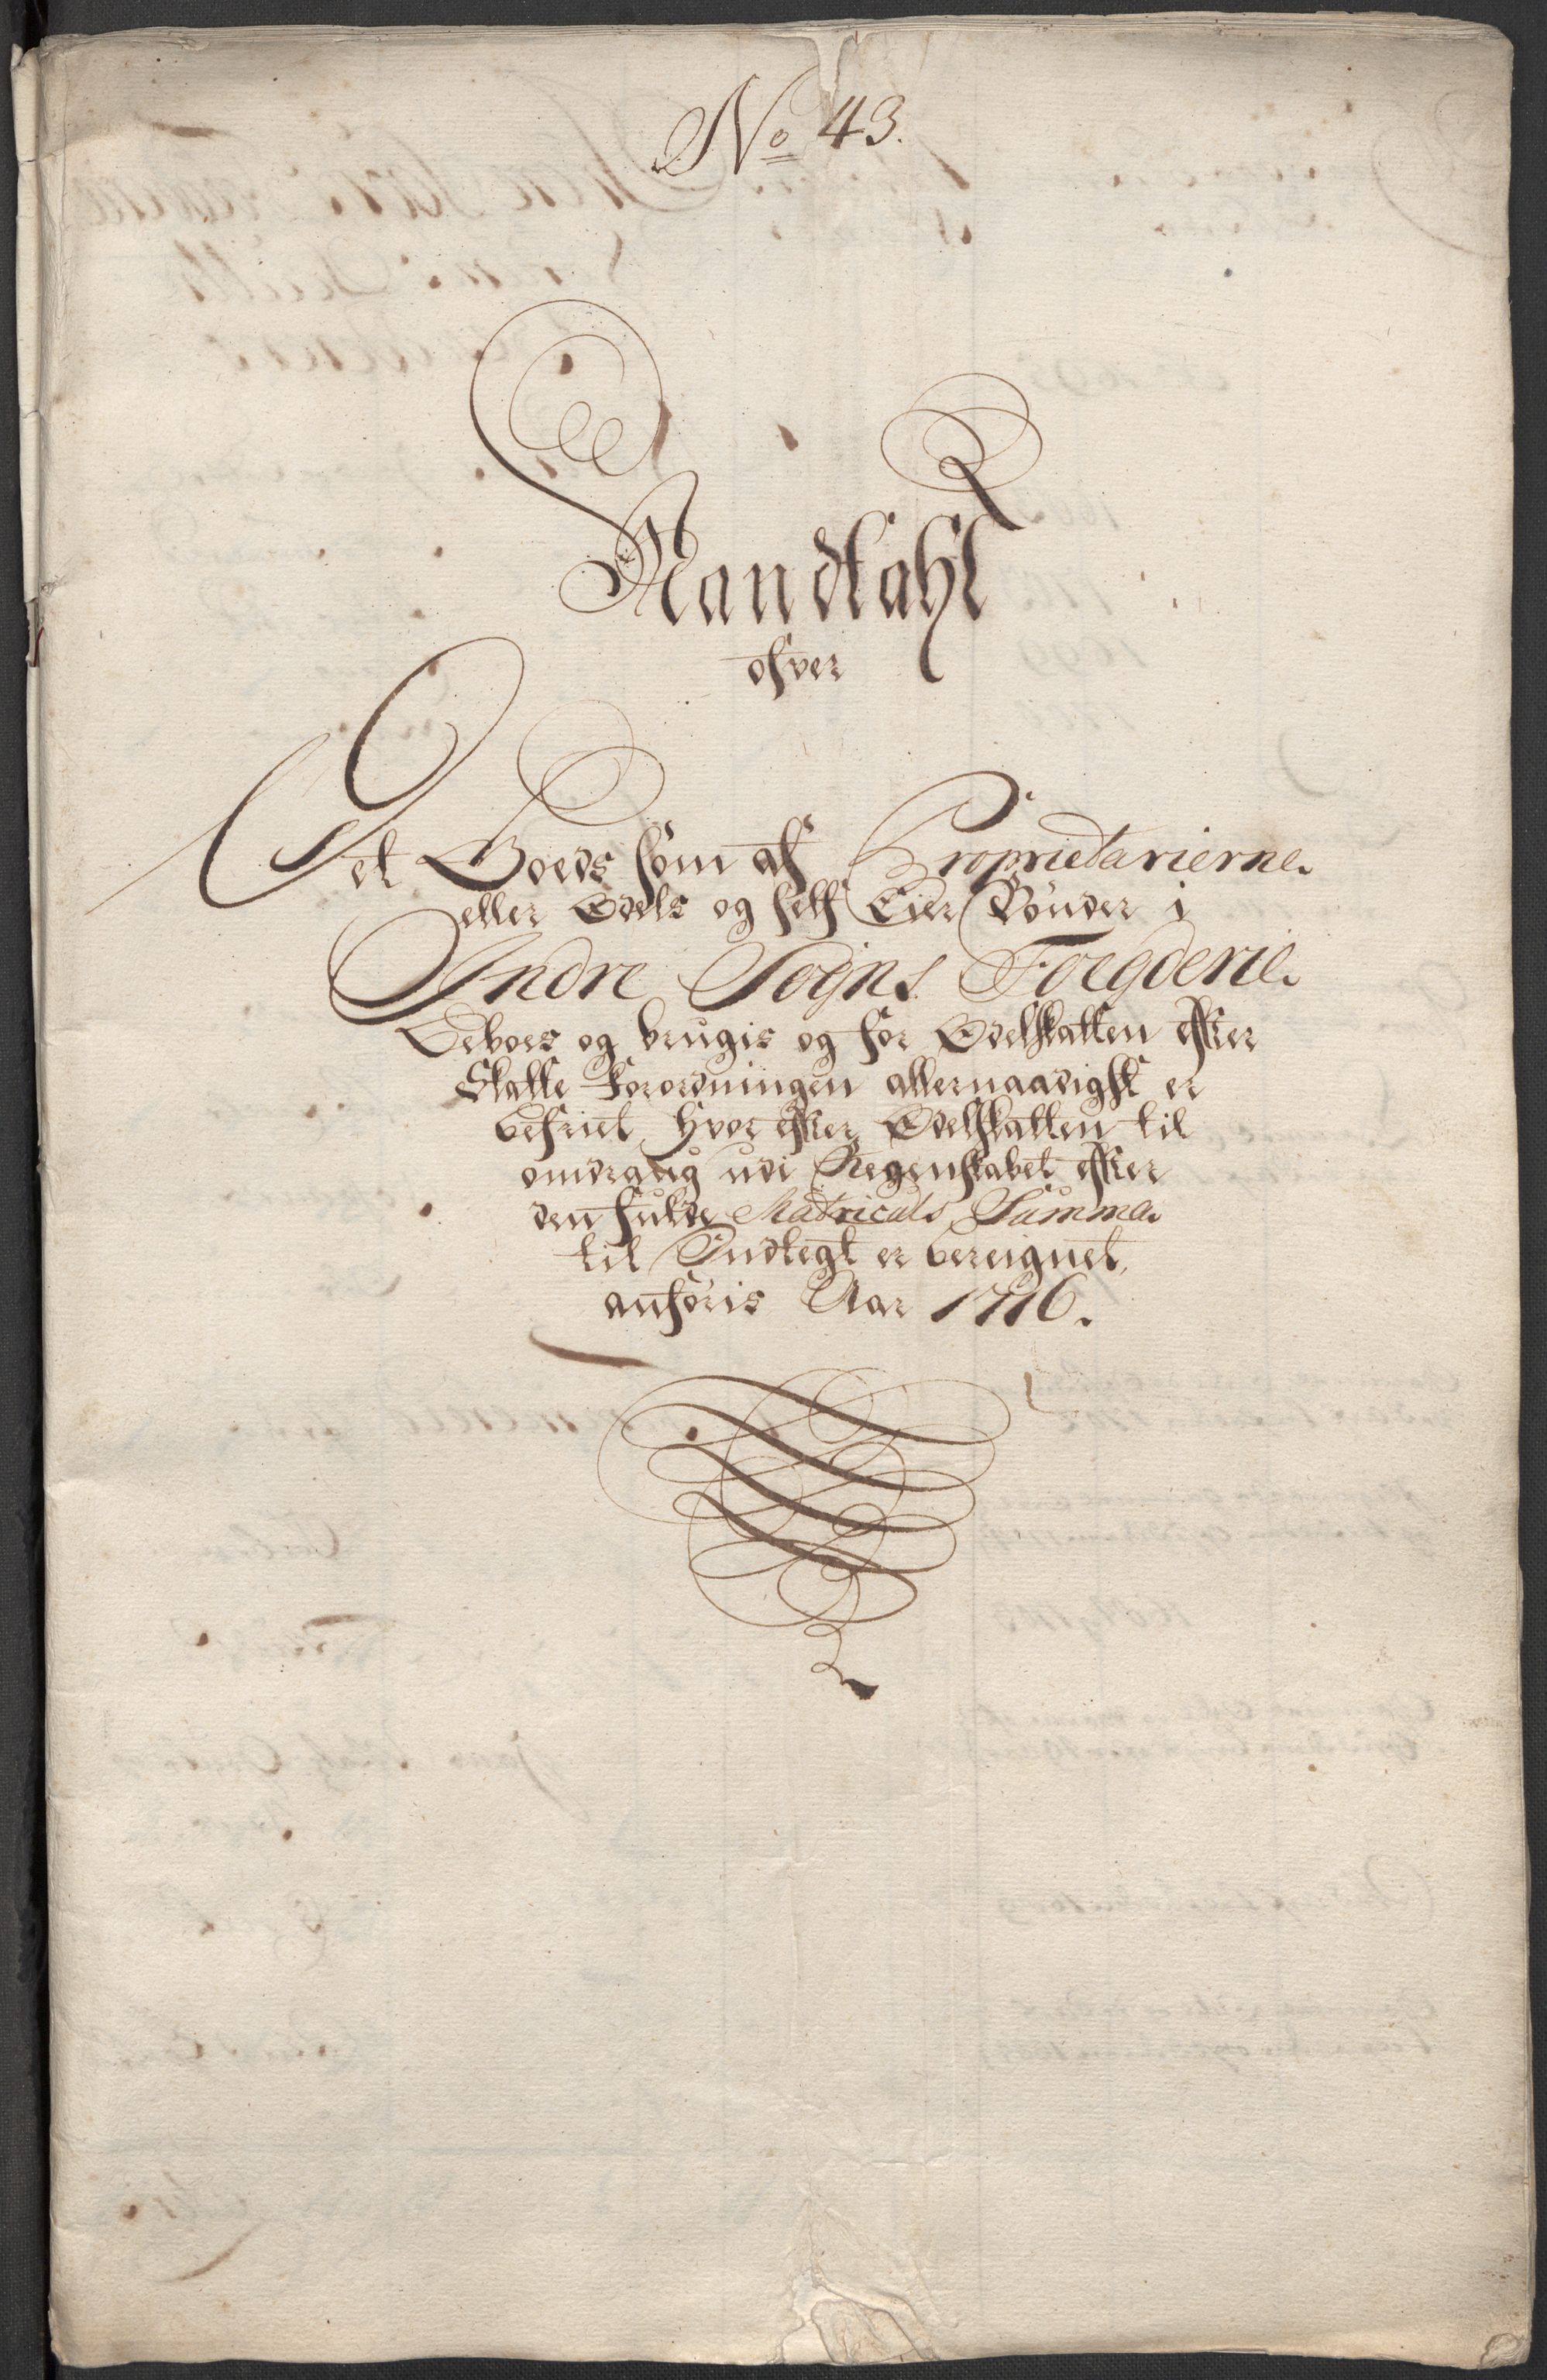 No 43.
Mandtahl
ofver
Det Goeds som af Proprietarierne
eller Odels og self Eier Bønder i
Indre Sogns Foegderie
Beboes og brugis og for Odelskatten efter
Skatte Forordningen allernaadigst er
befriet, hvor efter Odelskatten til
omdrag udi Regenskabet efter
den fulde Matriculs Summa
til Indtegt er bereignet,
anføris Aar 1716.